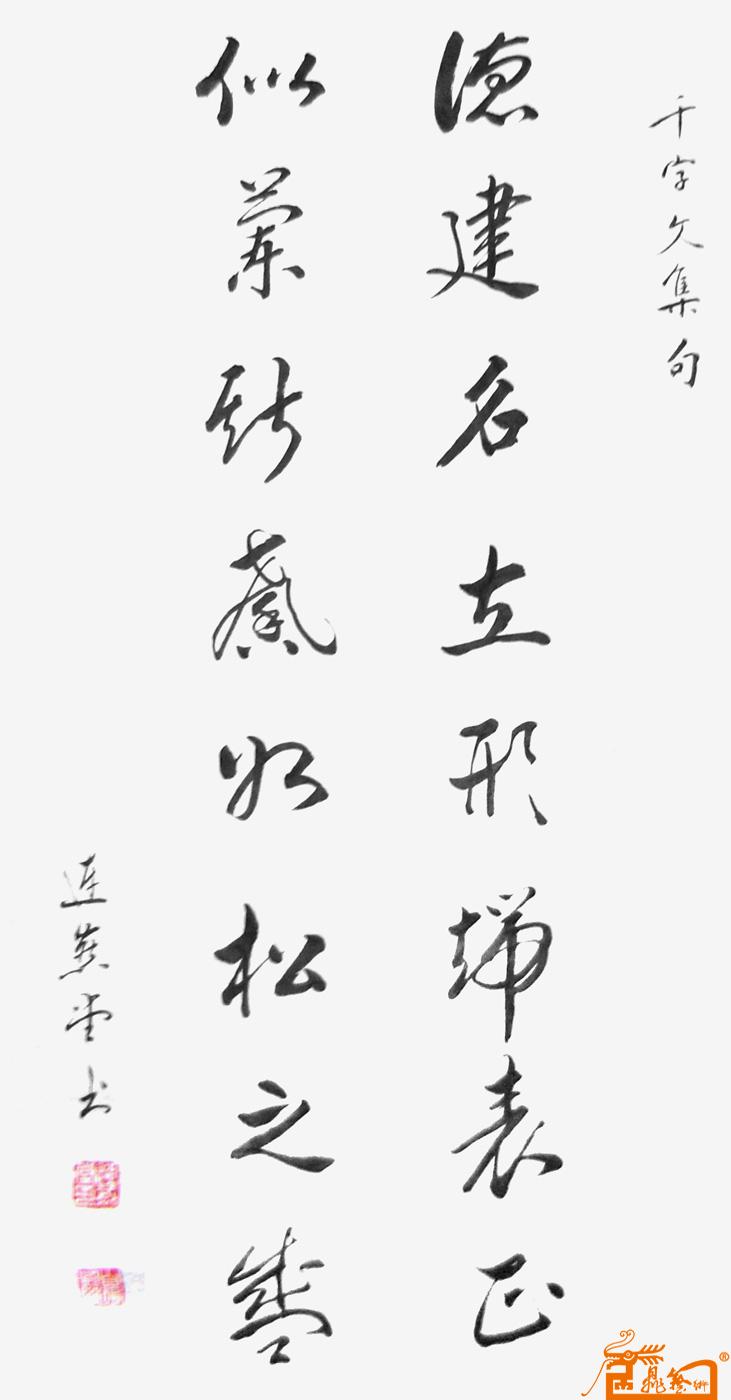 千字文集句
德建名立形端表正
似兰斯馨如松之盛
连燕堂书